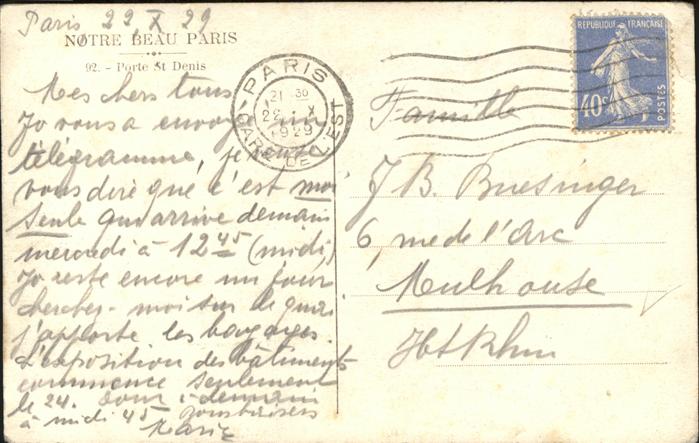 Paris 22 X 29
NOTRE BEAU PARIS
92. - Porte St Denis
Mes chers tous
Je vous a envoy un
télégramme, je veux
vous dire que c'est moi
seule qui arrive demain
mercredi à 12 45 (midi)
Jo reste encore un jour
cherchez-moi sur le quai
j'apporte les bagages.
L'exposition des bâtiments
commence seulement
le 24. Donc à demain
à midi 45 Bons baisers
Marie
PARIS
21 30
22 X
1929
GARE DE L'EST
REPUBLIQUE FRANÇAISE
40c
POSTES
Famille
J B. Buesinger
6, rue de l'Arc
Mulhouse
Ht Rhin